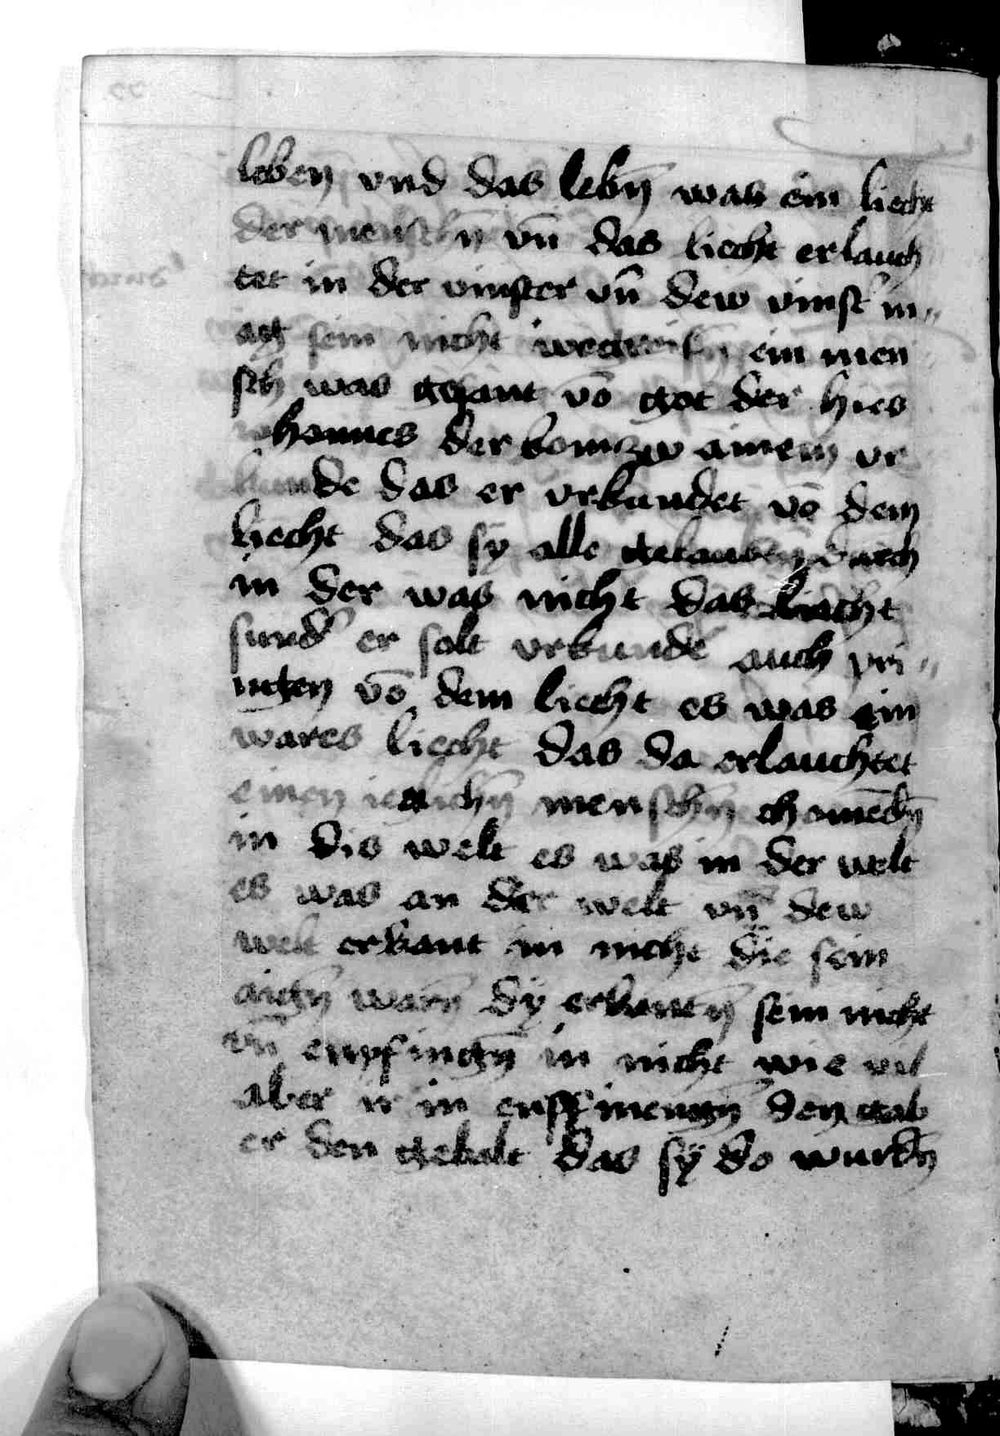 leben vnd das lebn̄ was ein liecht
der menschn̄ vn̄ das liecht erlauch
tet in der vinster vn̄ dew vinst' m„
ag sein nicht wegreifn̄ ein men
sch was gesant vō got der hies
johannes der kom zw ainem vr
kunde das er vrkundet vō dem
liecht das sy alle gelaubtn̄ durch
in der was nicht das liecht
sund' er solt vrkunde auch pri„
ngen vō dem liecht es was ein
wares liecht das da erlauchtet
einen iedlichn̄ menschn̄ chomēdn̄
in dis welt es was in der welt
es was an der welt vn̄ dew
welt erkant in nicht die sein
aign̄ warn̄ dÿ erkanten̄ sein nicht
vn̄ enpfingn̄ in nicht wie vil
aber ir in enpfinengn̄ den gab
er den gebalt das sÿ do wurdn̄